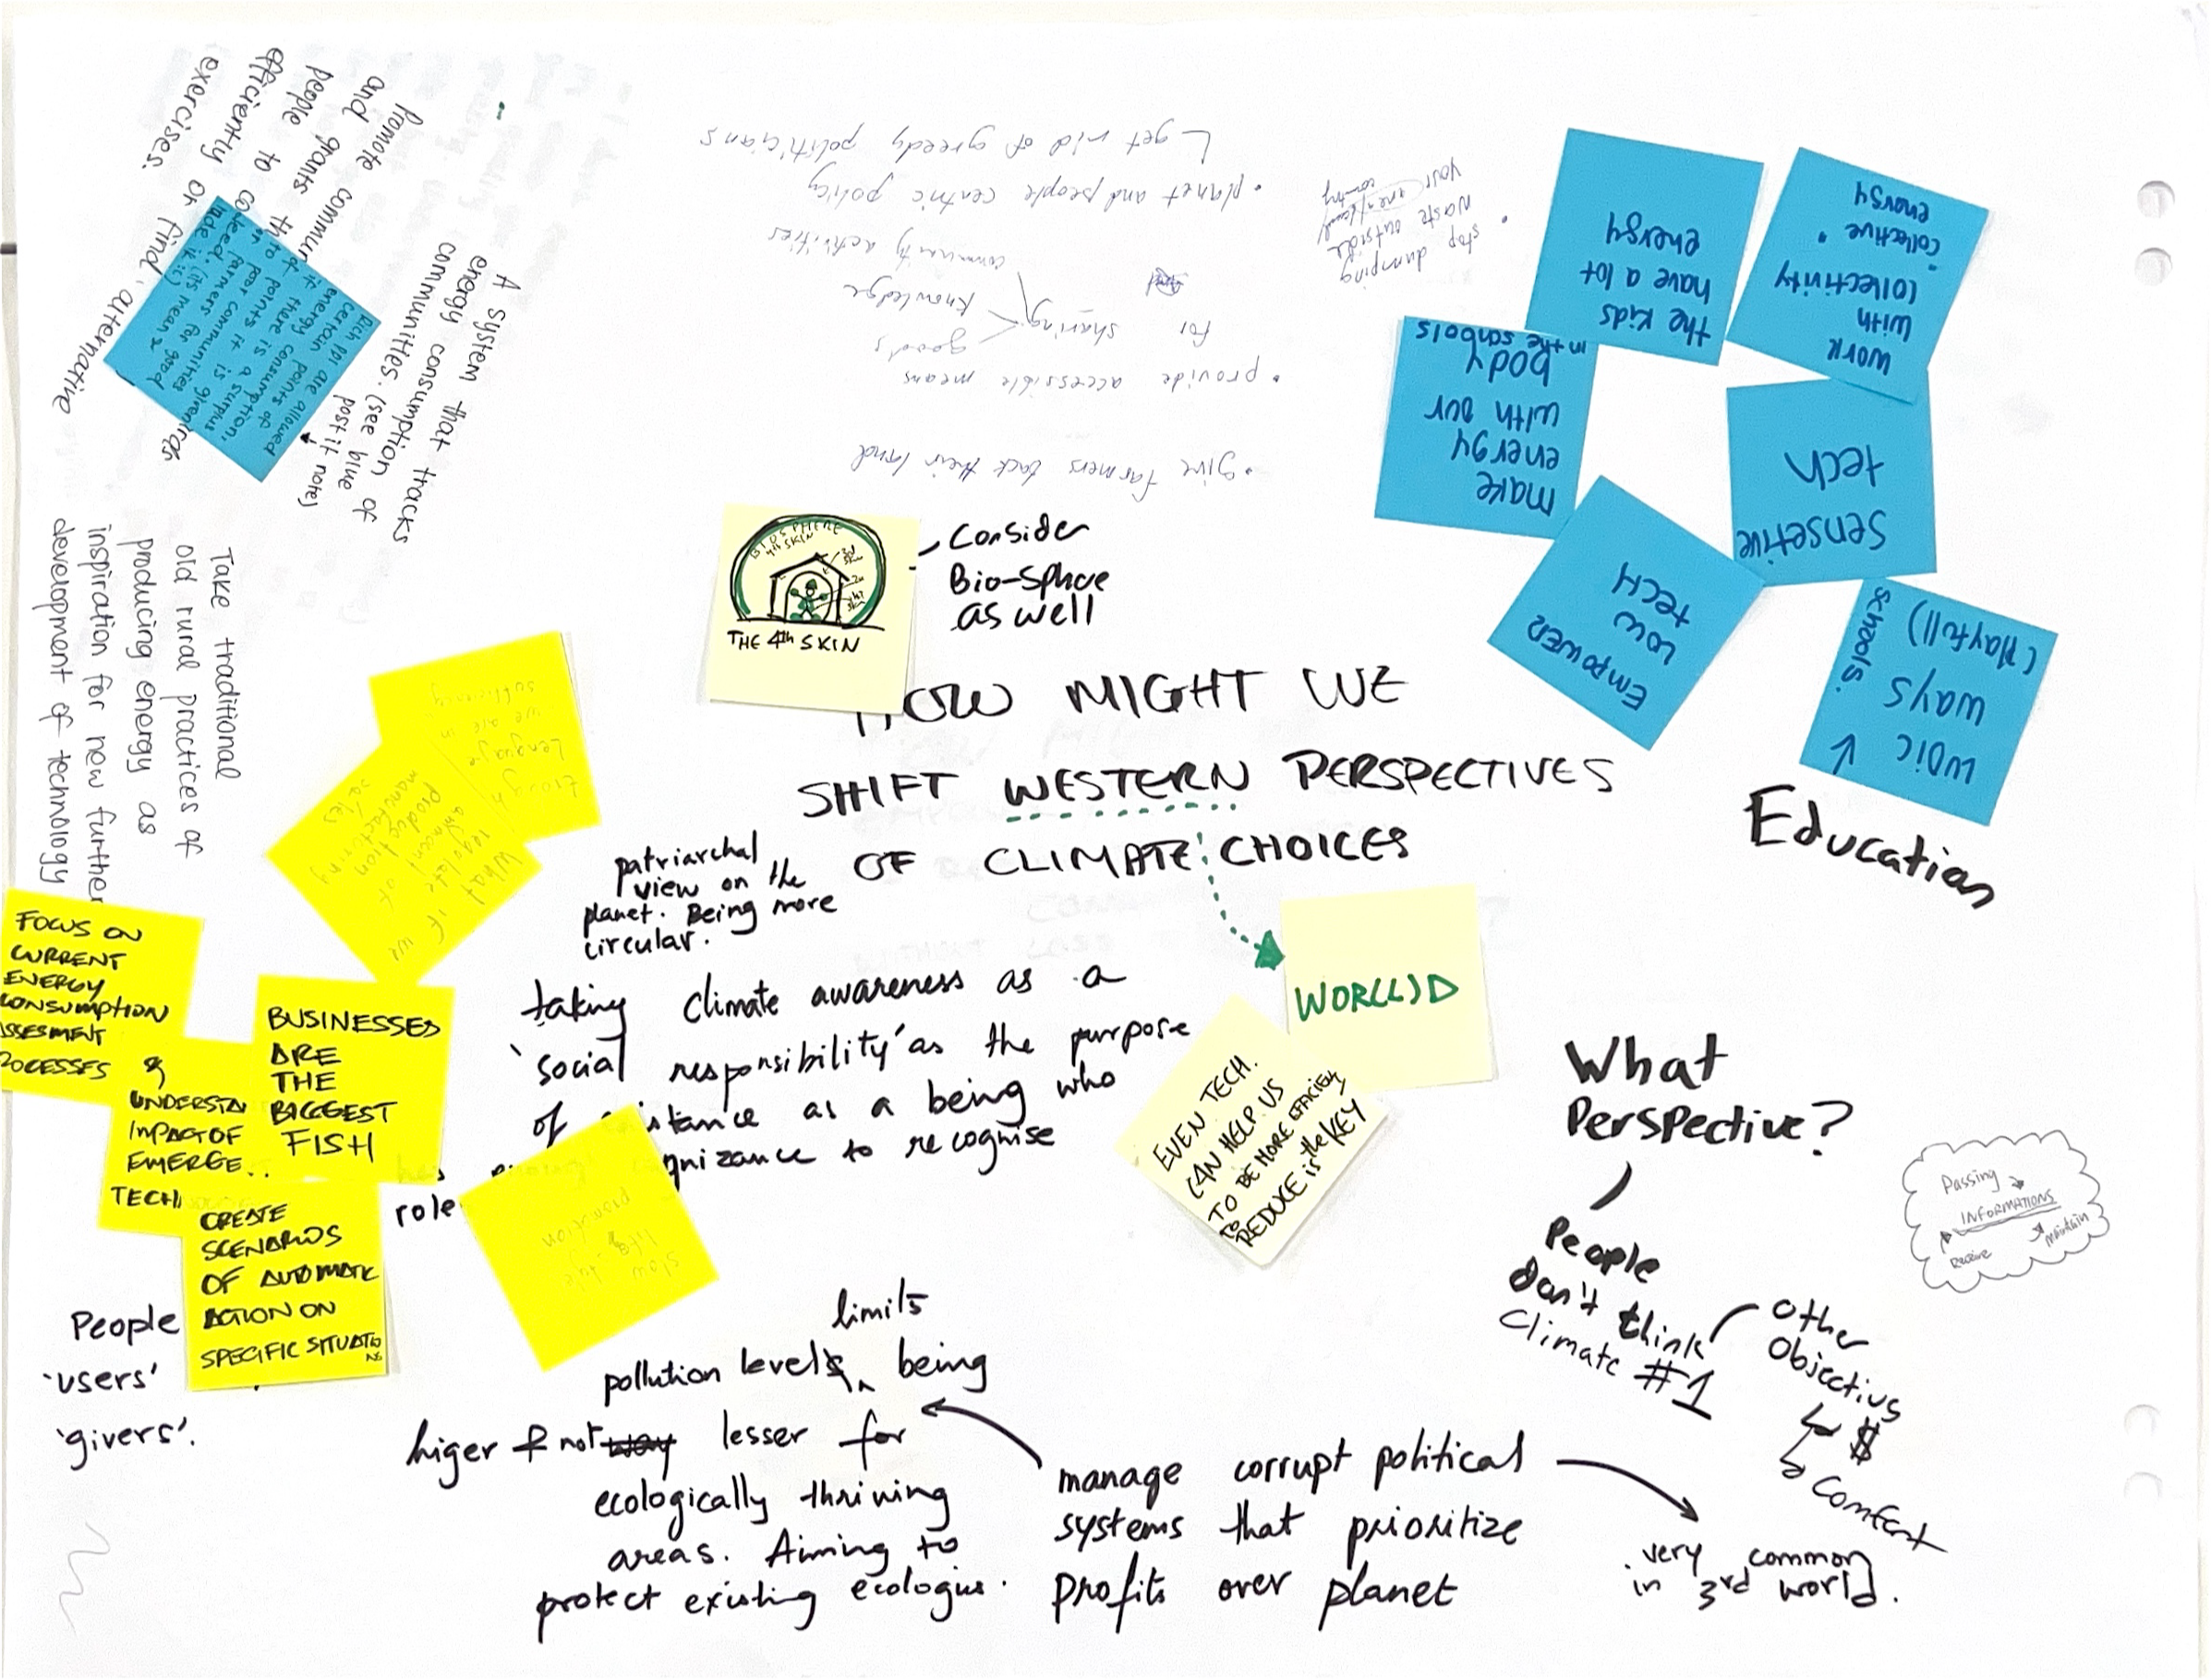 HOW MIGHT WE
SHIFT WESTERN PERSPECTIVES
OF CLIMATE CHOICES
WOR(L)D
EVEN TECH.
CAN HELP US
TO BE MORE EFFICIENT
TO REDUCE is the KEY
BIOSPHERE
4th SKIN
THE 4th SKIN
Consider
Bio-Sphere
as well
patriarchal
view on the
planet. Being more
circular.
taking climate awareness as a
'social responsibility' as the purpose
of
as a being who
to recognise
role
promote
and
community
grants
people to
efficiently or find alternative
exercises.
A system that tracks
energy consumption of
communities. (see blue
post it note)
Rich ppl are allowed
certain points of
energy consumption.
if there is a surplus
of points it is given
to poor communities
or farmers for good
deed. (its mean 2
Take traditional
old rural practices of
producing energy as
inspiration for new further
development of technology
• give farmers back their land
• provide accessible means
for sharing
goods
knowledge
community activities
• planet and people centric policy
get rid of greedy politicians
• stop dumping
waste outside
your area/level/
country
work
with
collectivity
"collective"
energy
the kids
have a lot
energy
make
energy
with our
body
in the schools
sensetive
tech
Empower
low
tech
ways
(Playfull)
schools.
Education
Enough
Lenguage
we are in
What if we
regolate
ammount of
Production
manufactoring
sales
FOCUS ON
CURRENT
ENERGY
CONSUMPTION
SSESMENT
ROCESSES
&
UNDERSTA
IMPACT OF
EMERGE..
TECH
BUSINESSES
ARE
THE
BIGGEST
FISH
CREATE
SCENARIOS
OF AUTOMATIC
ACTION ON
SPECIFIC SITUATIONS
slow
life style
promotion
People
'users'
'givers'.
limits
pollution levels being
higer & not lesser for
ecologically thriving
areas. Aiming to
protect existing ecologies.
manage corrupt political
systems that prioritize
profits over planet
very common
in 3rd world.
What
Perspective?
People
don't think
Climate #1
Other
Objectivs
$
Comfort
Passing
INFORMATIONS
Receive
maintain